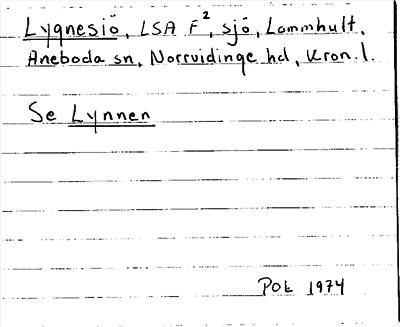 Lygnesjö, LSA F², sjö, Lammhult,
Aneboda sn, Norrvidinge hd, Kron. l.
Se Lynnen
POE 1974